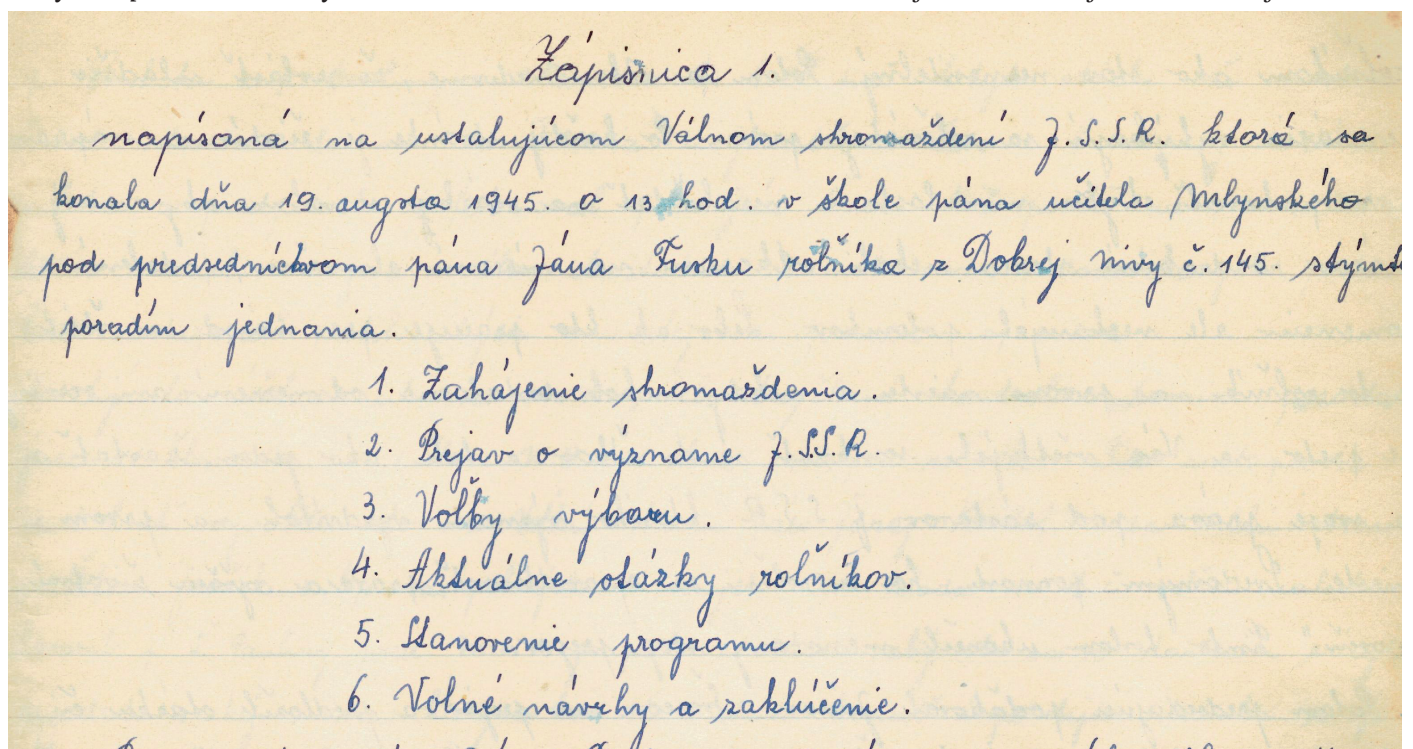 Zápisnica 1.
napísaná na ustalujúcom Válnom shromaždení J.S.S.R. ktorá sa
konala dňa 19. augsta 1945. o 13 hod. v škole pána učitela Mlynského
pod predsedníctvom pána Jána Fusku rolníka z Dobrej Nivy č. 145. stýmto
poradím jednania.
1. Zahájenie shromaždenia.
2. Prejav o význame J.S.S.R.
3. Voľby výboru.
4. Aktuálne otázky roľníkov.
5. Stanovenie programu.
6. Volné návrhy a zaklúčenie.